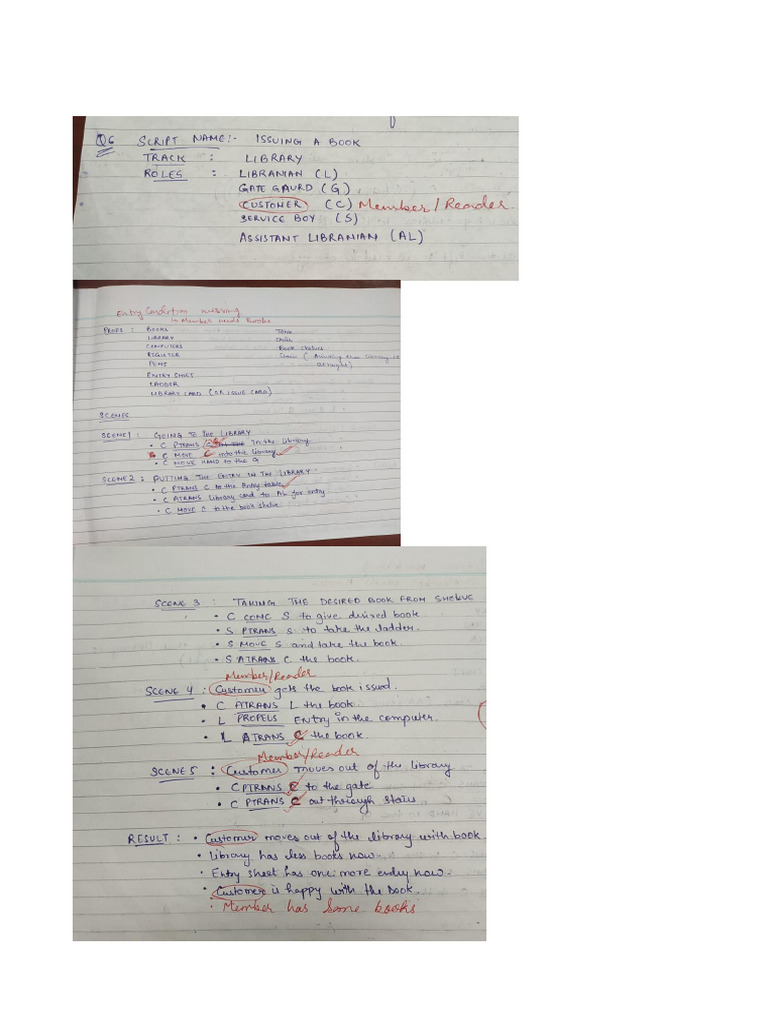 Q6 SCRIPT NAME:- ISSUING A BOOK
TRACK : LIBRARY
ROLES : LIBRANIAN (L)
GATE GAURD (G)
CUSTOMER (C) Member/Reader
SERVICE BOY (S)
ASSISTANT LIBRANIAN (AL)
Entry Condition missing
Member needs Books
PROPS : BOOKS
LIBRARY
COMPUTERS Book shelves
REGISTER Stairs (Assuming that library is
PENS
ENTRY SHEET
LADDER
LIBRARY CARD (OR ISSUE CARD)
SCENES
SCENE 1 : GOING TO THE LIBRARY
• C PTRANS in the library
• C MOVE C into the library
• C MOVE HAND to the G
SCENE 2 : PUTTING THE ENTRY IN THE LIBRARY
• C PTRANS C to the Entry table
• C ATRANS library card to AL for entry
• C MOVE C to the book shelve
SCENE 3 : TAKING THE DESIRED BOOK FROM SHELVE
• C CONC S to give desired book
• S PTRANS S to take the ladder.
• S MOVE S and take the book.
• S ATRANS C the book.
Member/Reader
SCENE 4 : Customer gets the book issued.
• C ATRANS L the book.
• L PROPELS Entry in the computer.
• L ATRANS C the book.
Member/Reader
SCENE 5 : Customer moves out of the library
• C PTRANS C to the gate
• C PTRANS C out through stairs
RESULT : • Customer moves out of the library with book.
• Library has less books now.
• Entry sheet has one more entry now.
• Customer is happy with the book.
• Member has some books